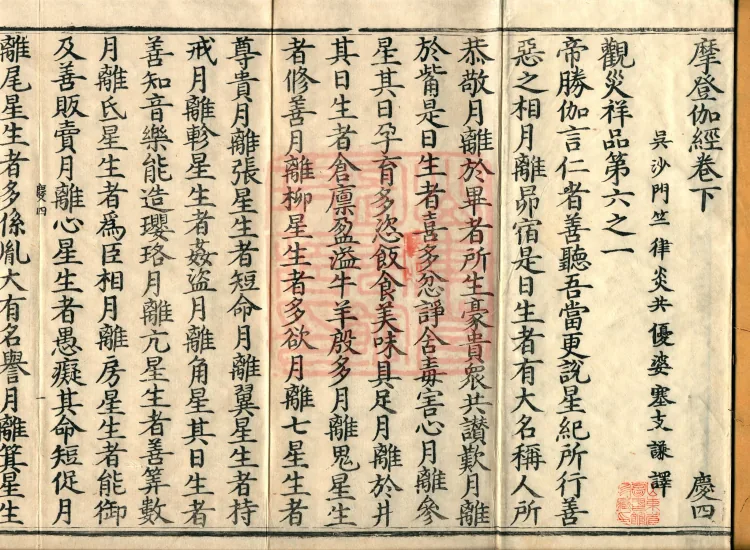 摩登伽經卷下 慶四
吳沙門竺律炎共優婆塞支謙譯
觀災祥品第六之一
帝勝伽言仁者善聽吾當更說星紀所行善
惡之相月離昴宿是日生者有大名稱人所
恭敬月離於畢者所生豪貴眾共讃歎月離
於觜是日生者喜多忿諍含毒害心月離參
星其日孕育多恣飯食美味具足月離於井
其日生者倉廪盈溢牛羊殷多月離鬼星生
者修善月離柳星生者多欲月離七星生者
尊貴月離張星生者短命月離翼星生者持
戒月離軫星生者姦盜月離角星其日生者
善知音樂能造瓔珞月離亢星生者善筭數
月離氐星生者爲臣相月離房星生者能御
及善販賣月離心星生者愚癡其命短促月
慶四
離尾星生者多係胤大有名譽月離箕星生